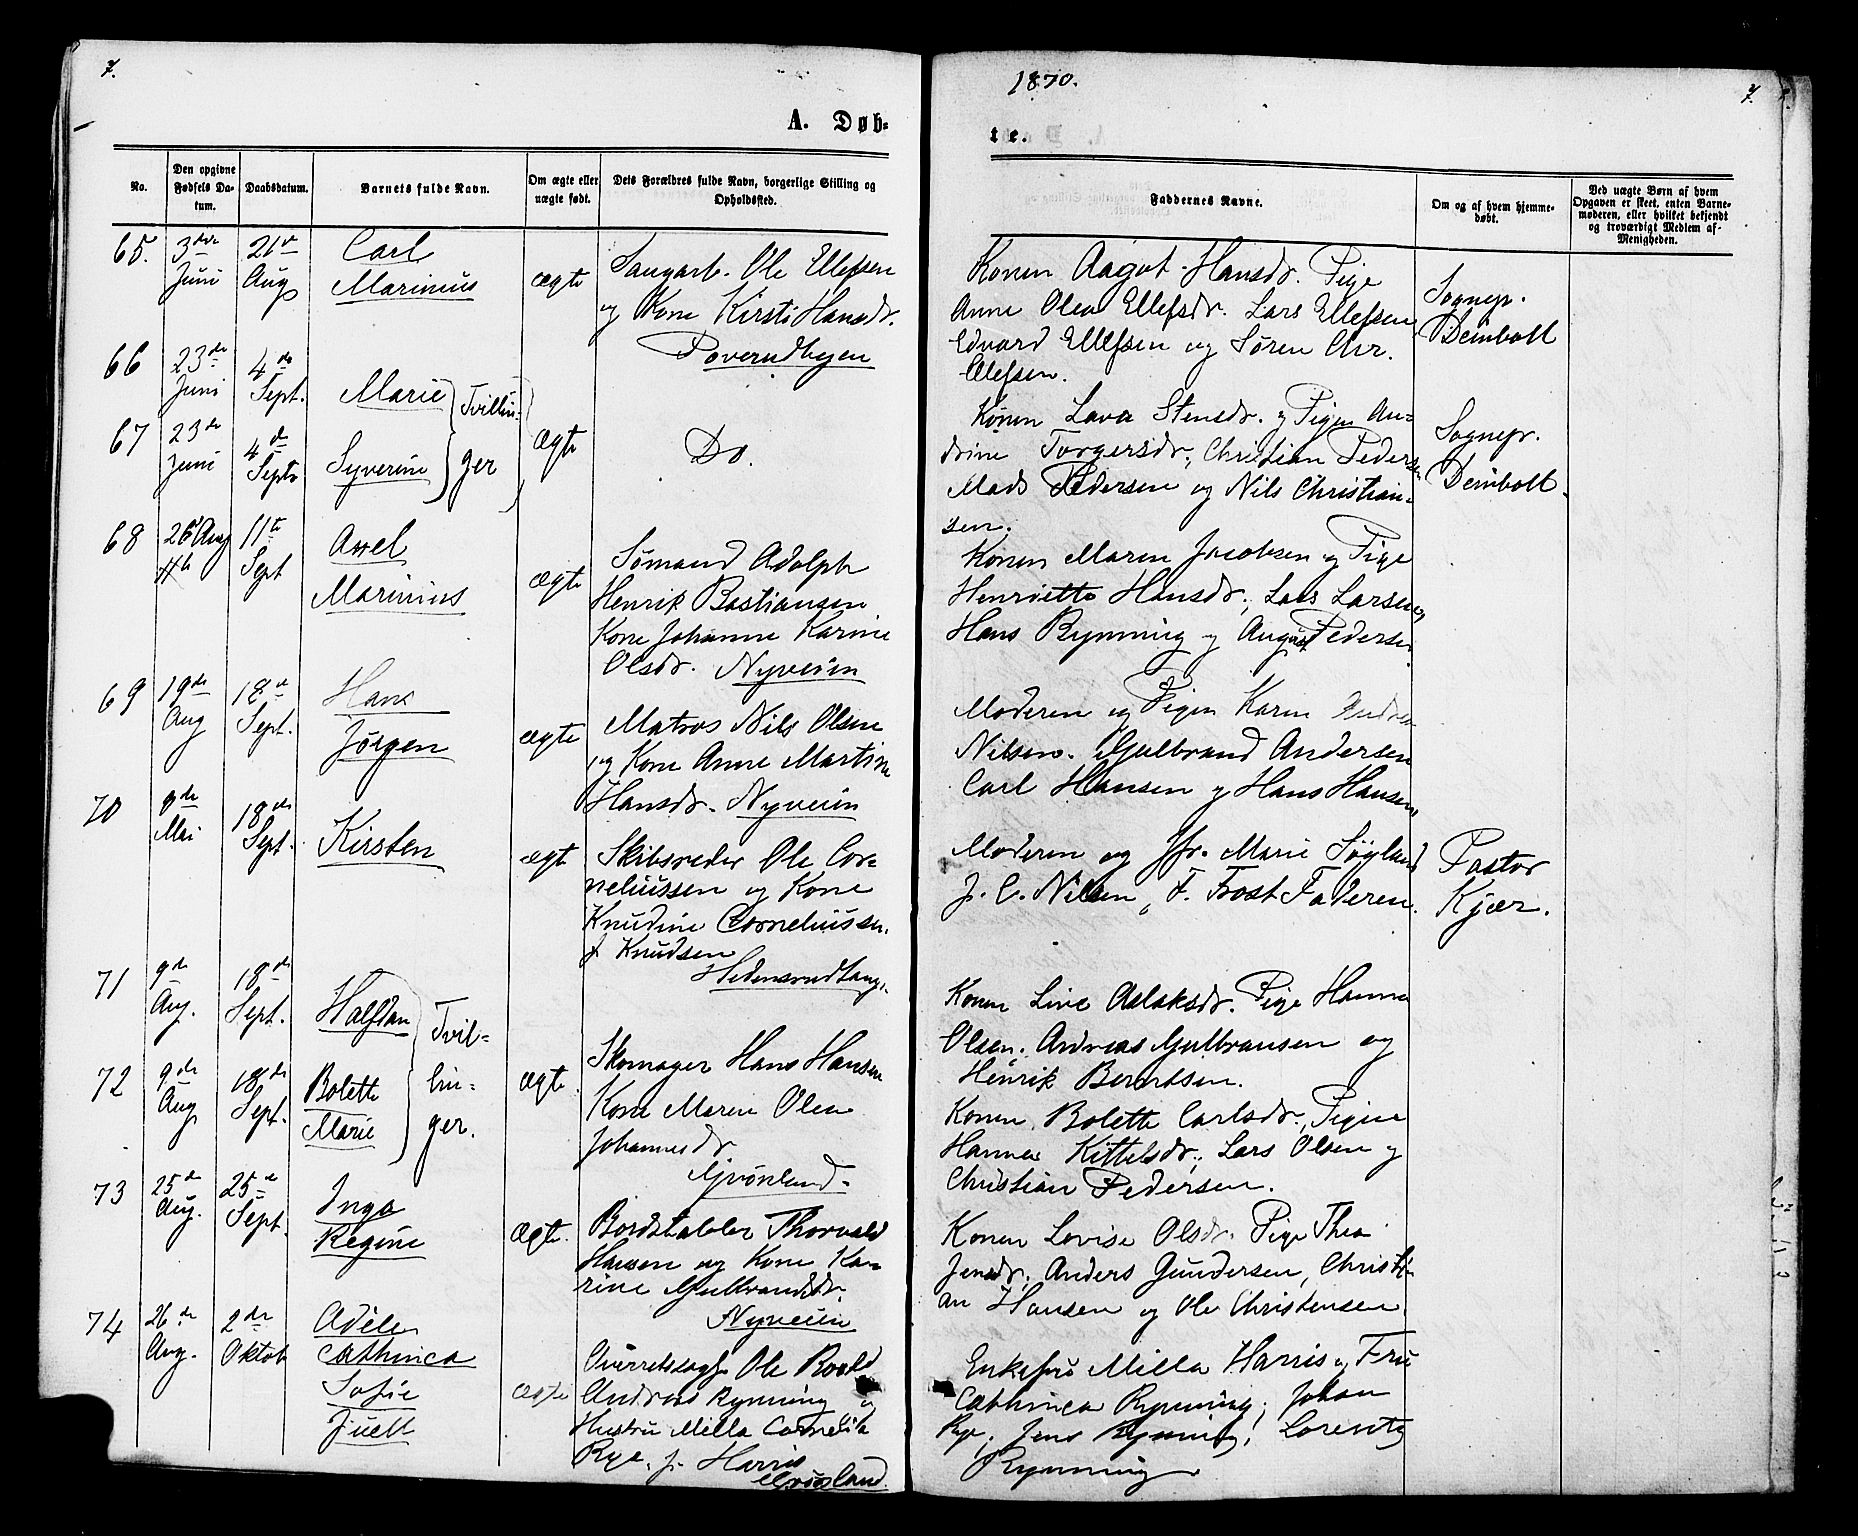 7.
1870.
7.
A. Døb-
te.
No.
Den opgivne
Fødsels Da-
tum.
Daabsdatum.
Barnets fulde Navn.
Om ægte eller
uægte født.
Dets Forældres fulde Navn, borgerlige Stilling og
Opholdssted.
Faddernes Navne.
Om og af hvem hjemme-
døbt.
Ved uægte Børn af hvem
Opgaven er skeet, enten Barne-
moderen, eller hvilket bekjendt
og troværdigt Medlem af
Menigheden.
65.
3die
Juni
21de
Aug
Carl
Marinius
ægte
Saugarb. Ole Ellefsen
og Kone Kirsti Hansdr.
Poverudbyen
Konen Aagot Hansdr. Pige
Anne Olea Ellefsdr. Lars Ellefsen
Edvard Ellefsen og Søren Chr.
Olefsen.
Sognepr.
Deinboll
66
23de
Juni
4de
Sept.
Marie
Tvillin-
67
23de
Juni
4de
Septr
Syverine
ger
ægte
Do.
Konen Lava Stensdr. og Pigen An-
drine Torgersdr., Christian Pedersen
Mads Pedersen og Nils Christian-
sen.
Sognepr.
Deinboll.
68
26 Aug
11te
Sept
Axel
Marinius
ægte
Sømand Adolph
Henrik Bastiansen
Kone Johanne Karine
Olsdr. Nyveien
Konen Maren Jacobsen og Pige
Henriette Hansdr., Lars Larsen,
Hans Rynning og August Pedersen.
69
19de
Aug
18de
Sept.
Hans
Jørgen
ægte
Matros Nils Olsen
og Kone Anne Martine
Hansdr. Nyveien
Moderen og Pigen Karen
Nilsen. Gulbrand Andersen
Carl Hansen og Hans Hansen,
70
9de
Mai
18de
Sept.
Kirsten
ægte
Skibsreder Ole Cor-
neliussen og Kone
Knudine Corneliussen,
f. Knudsen
Moderen og Jfr. Marie Søyland
J. C. Nilsen, F. Frost Faderen.
Pastor
Kjær.
71
9de
Aug.
18de
Sept.
Halfdan
Tvil-
72
9de
Aug
18de
Sept.
Bolette
Marie
lin-
ger.
ægte
Skomager Hans Hansen
Kone Maren Olea
Johannesdr
Grønland.
Konen Live Aslaksdr. Pige Hanna
Olsen, Andreas Gulbransen og
Henrik Berntsen.
Konen Bolette Carlsdr., Pigen
Hanna Kittelsdr., Lars Olsen og
Christian Pedersen.
73
25de
Aug.
25de
Sept.
Inga
Regine
ægte.
Bordstabler Thorvald
Hansen og Kone Ka-
rine Gulbrandsdr.
Nyveien
Konen Lovise Olsdr. Pige Thea
Jensdr. Anders Gundersen, Christi-
an Hansen og Ole Christensen
74
26de
Aug.
2den
Oktob
Adéle
Cathinca
Sofie
Juell
ægte
Overretssagf. Ole Roald
Andreas Rynning og
Hustru Milla Cornelia
Rye, f. Harris
Grønland.
Enkefru Milla Harris og Fru
Cathinca Rynning, Johan
Rye, Jens Rynning, Lorentz
Rynning